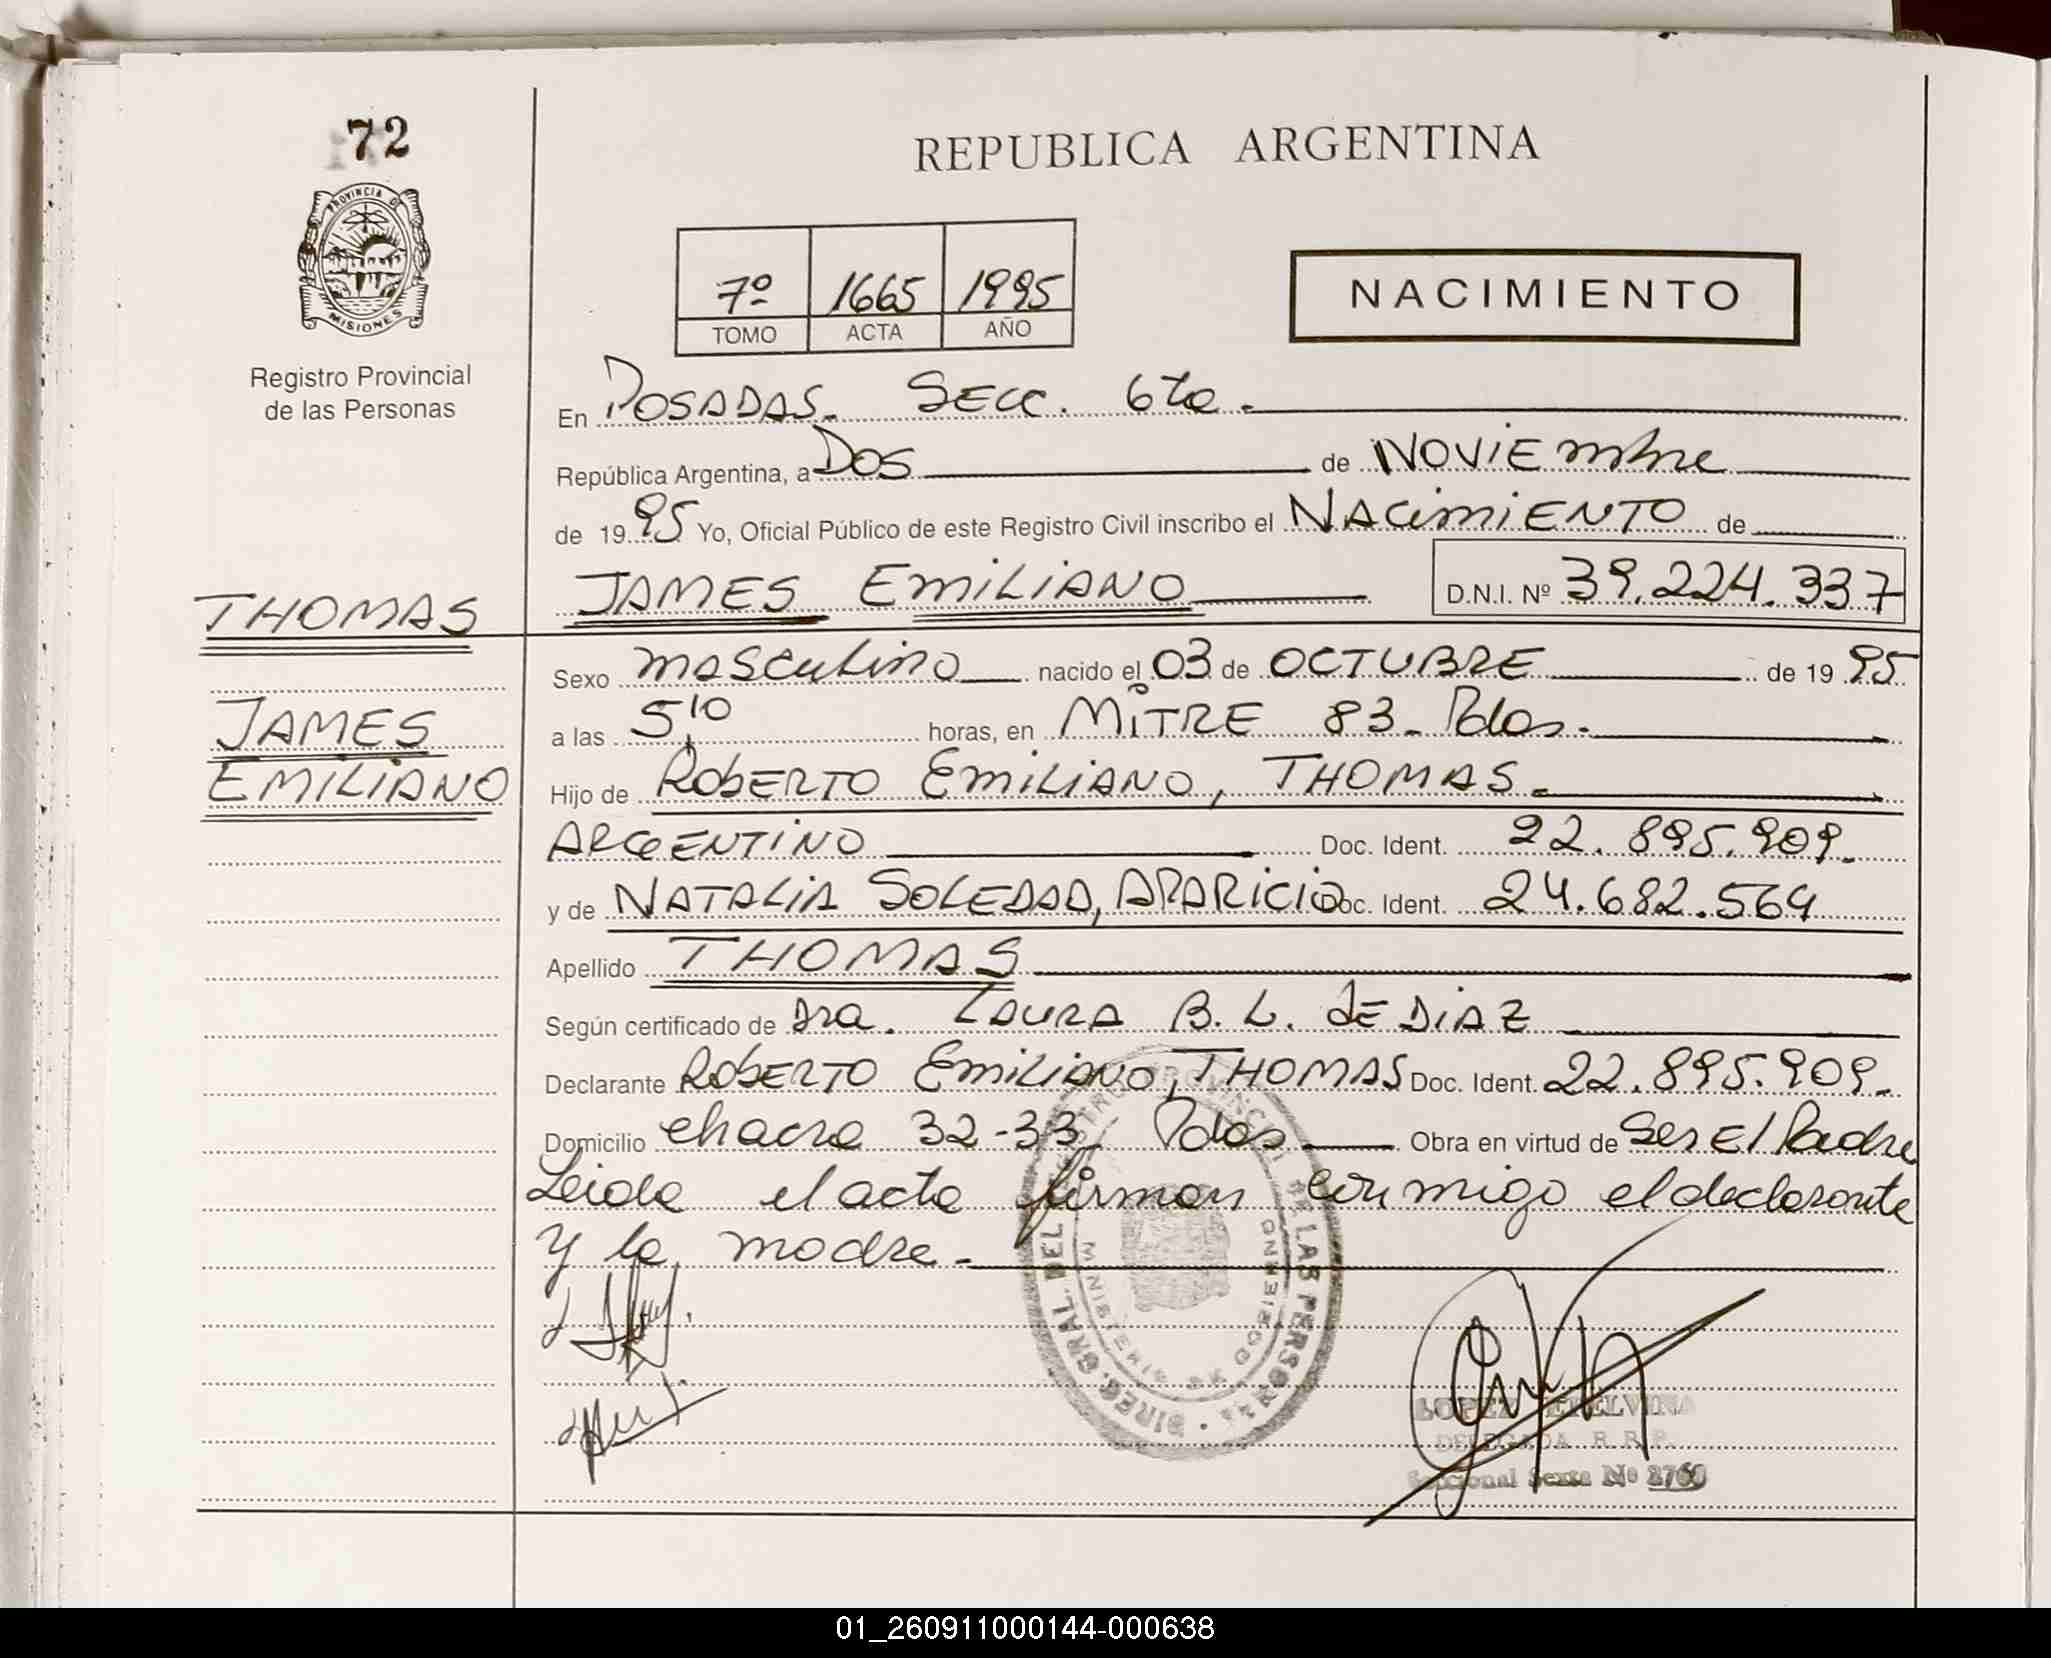 72
PROVINCIA DE
MISIONES
Registro Provincial
de las Personas
REPUBLICA ARGENTINA
7º 1665 1995
TOMO ACTA AÑO
NACIMIENTO
En POSADAS. SECC. 6ta.
República Argentina, a DOS de NOVIEmbre
de 1995 Yo, Oficial Público de este Registro Civil inscribo el NACimiENTO de
JAMES EmiLiANO D.N.I. Nº 39.224.337
THOMAS
JAMES
EMILIANO
Sexo masculino nacido el 03 de OCTUBRE de 1995
a las 5,10 horas, en MiTRE Nº 83_ Pdas.
Hijo de ROBERTO EmiLiANO, THOMAS.
ARGENTINO Doc. Ident. 22.895.909.
y de NATALiA SOLEDAD, APARICIO Doc. Ident. 24.682.564
Apellido THOMAS
Según certificado de Dra. LAURA B. L. de DiAZ
Declarante ROBERTO EmiLiANO, THOMAS Doc. Ident. 22.895.909.
Domicilio chacra 32-33, Pdas Obra en virtud de Ser El Padre
Leida el acta firman conmigo el declarante
y la madre.
DIREC. GRAL. DEL REGISTRO PROVINCIAL DE LAS PERSONAS
MINISTERIO DE GOBIERNO
LOPEZ ETELVINA
DELEGADA R.R.P.
Seccional Sexta Nº 2760
01_260911000144-000638